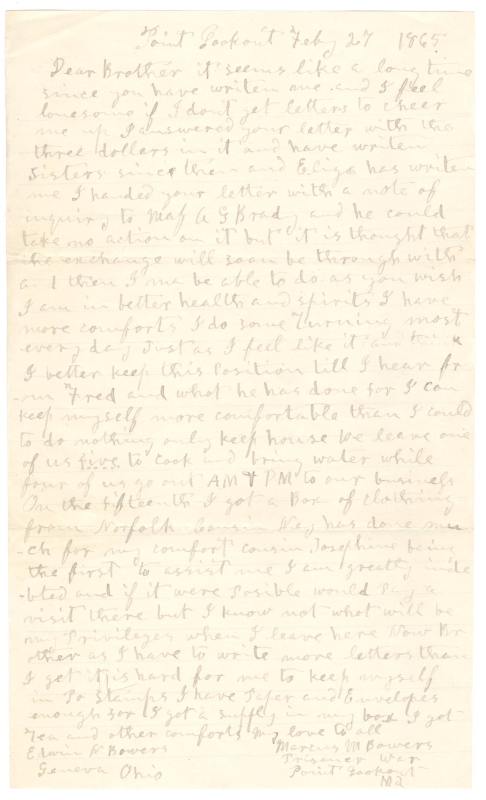 Point Lookout Feby 27 1865
Dear Brother it seems like a long time
since you have writen me and I feel
lonesome if I dont get letters to cheer
me up I answered your letter with the
three dollars in it and have writen
Sisters since then and Eliza has writen
me I handed your letter with a note of
inquiry to Maj A G Brady and he could
take no action on it but it is thought that
the exchange will soon be through with
and then I ma be able to do as you wish
I am in better health and spirits I have
more comforts I do some Turning most
every day Just as I feel like it and
I better keep this Position till I hear fr
-om Fred and what he has done for I can
keep myself more comfortable than I could
to do nothing only keep house We leave one
of us five to cook and bring water while
four of us go out AM & PM to our business
On the fifteenth I got a Box of clothing
from Norfolk Cousin has done mu
-ch for my comfort cousin Josephine being
the first to assist me I am greatly inde
-bted and if it were Posible would Pay a
visit there but I know not what will be
my Privileges when I leave here Now Br
other as I have to write more letters than
I get it is hard for me to keep myself
in Po Stamps I have Paper and Envelopes
enough for I got a supply in my box I got
Tea and other comforts my love to all
Edwin R Bowers Marcus M Bowers
Prisoner War
Geneva Ohio Point Lookout
Md